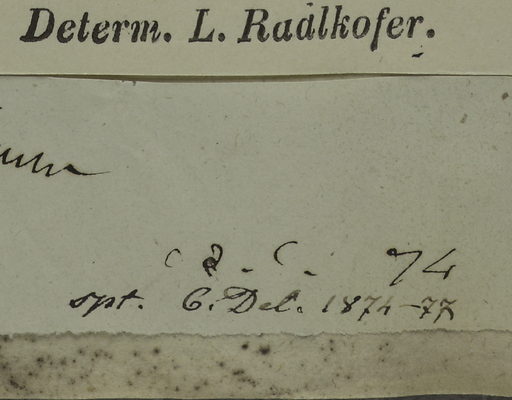 Determ. L. Radlkofer.
74
spt. C. Del. 1874-77